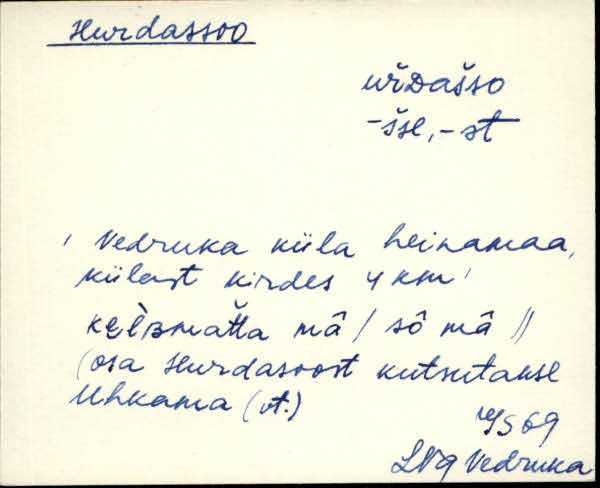 Hurdassoo
uřDašso
-šse, -st
' Vedruka küla heinamaa,
külast kirdes 4 km '
mâ / sô mâ //
(osa Hurdasoost kutsutakse
Uhkama (vt.)
69
LNg Vedruka